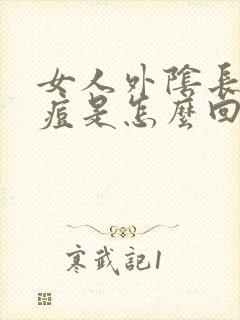 女人外陰長
痘是怎麼回
寒武記1